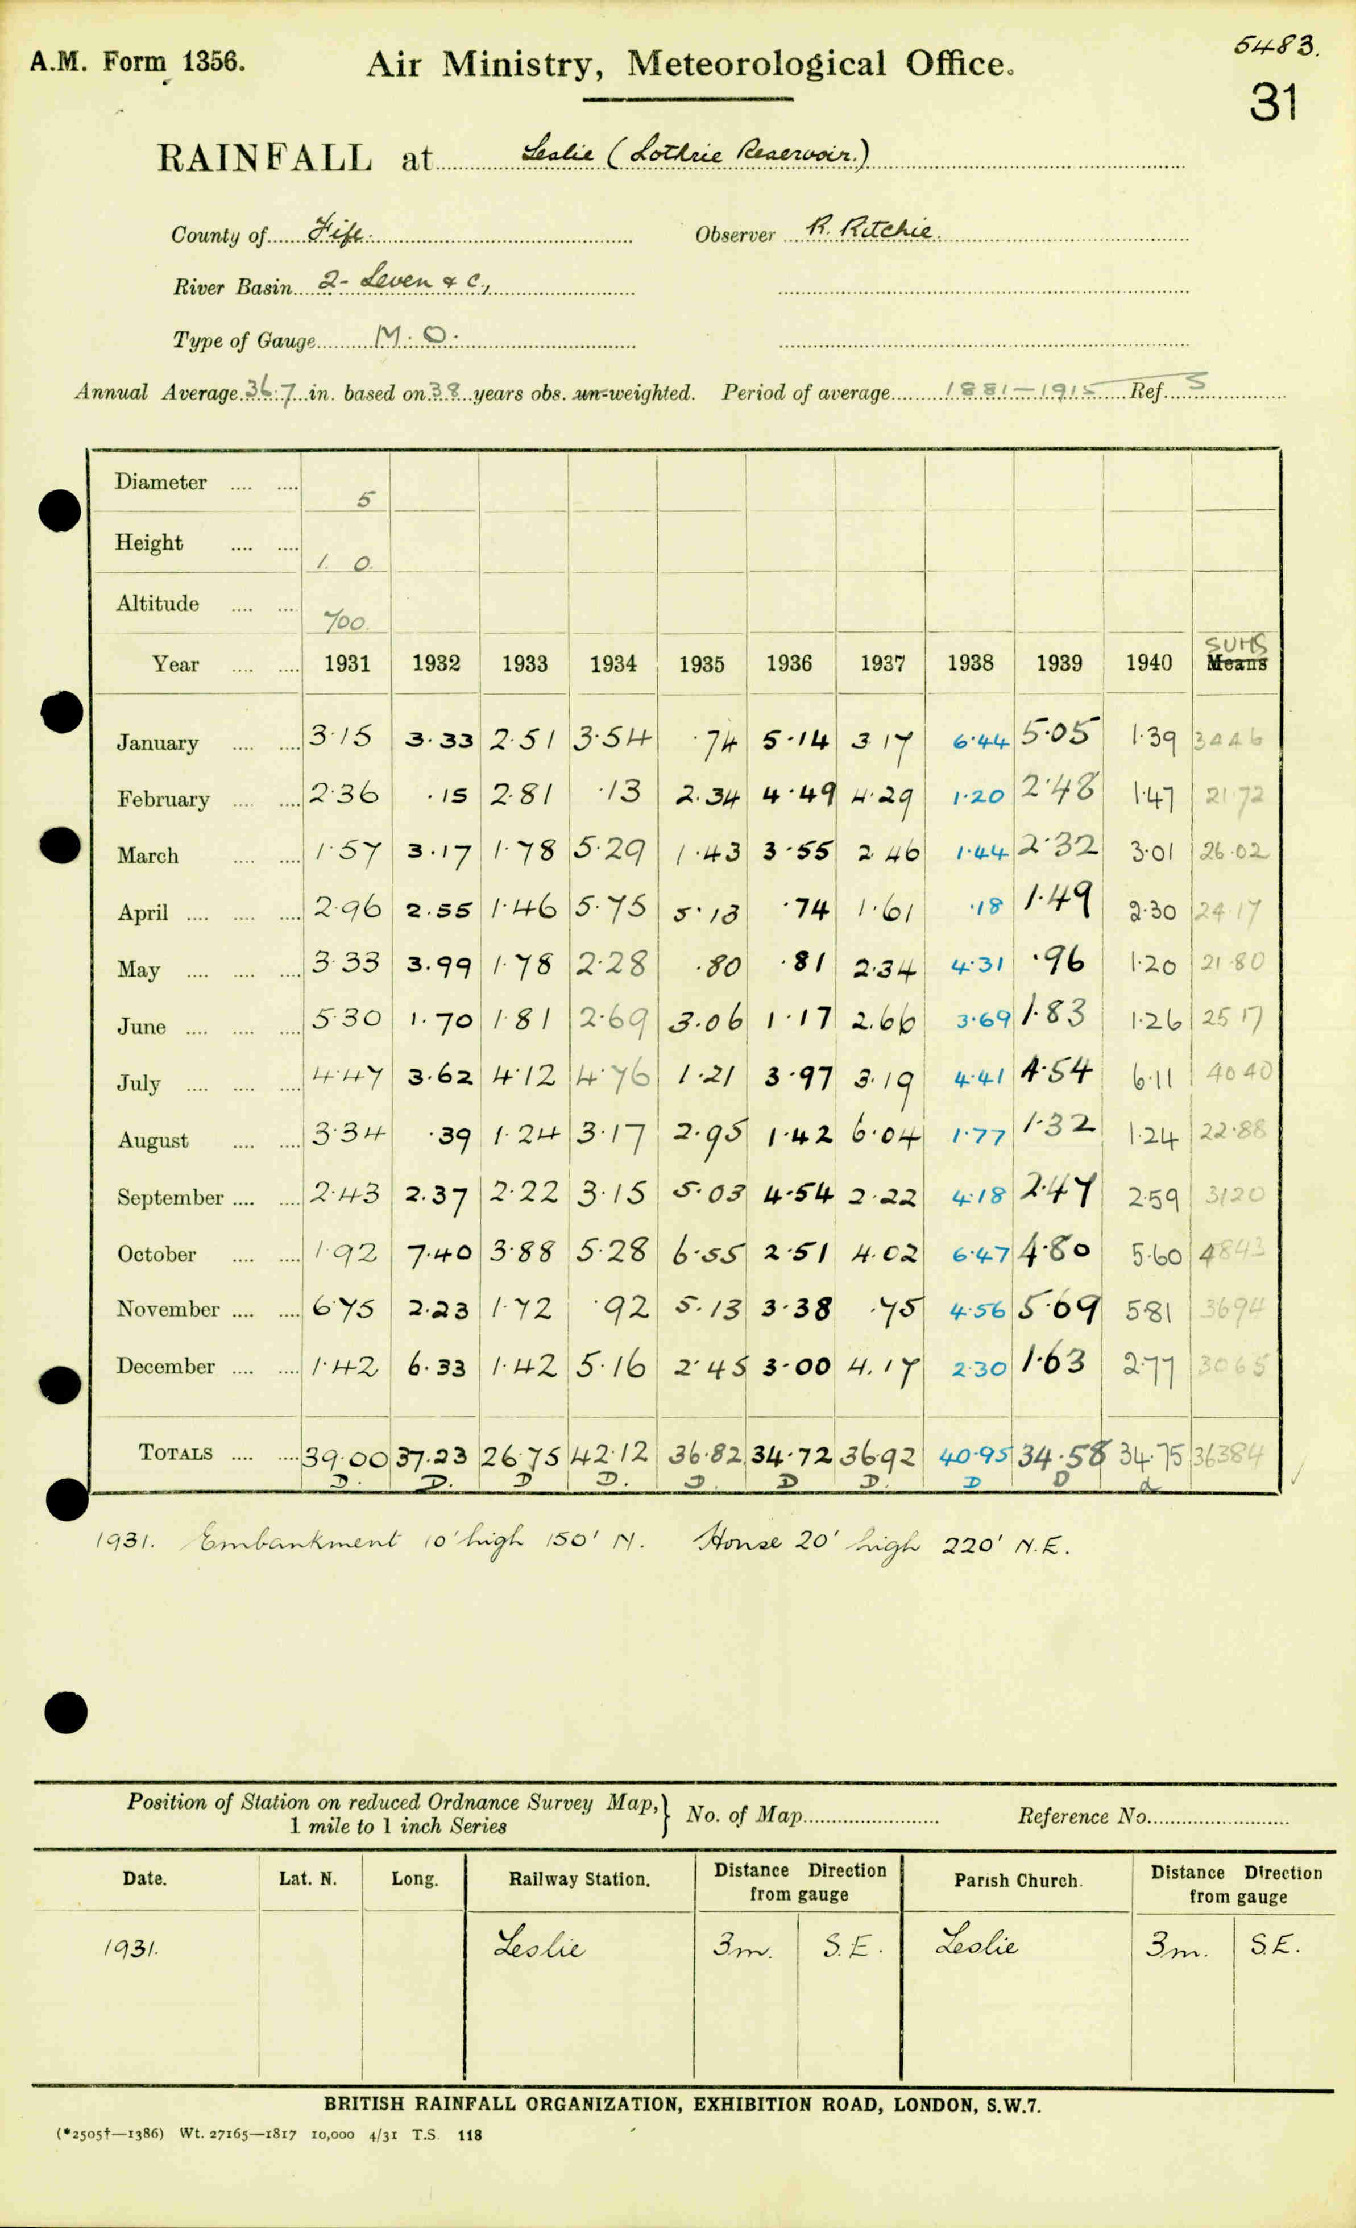 5483.
A.M. Form 1356. Air Ministry, Meteorological Office.
31
RAINFALL at Leslie (Lothrie Reservoir.)
County of Fife. Observer R. Ritchie.
River Basin 2- Leven & C.,
Type of Gauge M.O.
Annual Average 36.7 in. based on 38 years obs. un-weighted. Period of average 1881-1915 Ref. S
Diameter .... .... 5
Height .... .... 1. 0.
Altitude .... .... 700.
SUMS
Year .... .... 1931 1932 1933 1934 1935 1936 1937 1938 1939 1940 Means
January .... .... 3.15 3.33 2.51 3.54 .74 5.14 3.17 6.44 5.05 1.39 3446
February .... .... 2.36 .15 2.81 .13 2.34 4.49 4.29 1.20 2.48 1.47 21.72
March .... .... 1.57 3.17 1.78 5.29 1.43 3.55 2.46 1.44 2.32 3.01 26.02
April .... .... .... 2.96 2.55 1.46 5.75 5.13 .74 1.61 .18 1.49 2.30 24.17
May .... .... .... 3.33 3.99 1.78 2.28 .80 .81 2.34 4.31 .96 1.20 21.80
June .... .... .... 5.30 1.70 1.81 2.69 3.06 1.17 2.66 3.69 1.83 1.26 25.17
July .... .... .... 4.47 3.62 4.12 4.76 1.21 3.97 3.19 4.41 4.54 6.11 4040
August .... .... 3.34 .39 1.24 3.17 2.95 1.42 6.04 1.77 1.32 1.24 22.88
September .... .... 2.43 2.37 2.22 3.15 5.03 4.54 2.22 4.18 2.47 2.59 3120
October .... .... 1.92 7.40 3.88 5.28 6.55 2.51 4.02 6.47 4.80 5.60 4843
November .... .... 6.75 2.23 1.72 .92 5.13 3.38 .75 4.56 5.69 5.81 3694
December .... .... 1.42 6.33 1.42 5.16 2.45 3.00 4.17 2.30 1.63 2.77 3065
TOTALS .... .... 39.00 37.23 26.75 42.12 36.82 34.72 36.92 40.95 34.58 34.75 36384
D. D. D D. D. D D. D D d
1931. Embankment 10' high 150' N. House 20' high 220' N.E.
Position of Station on reduced Ordnance Survey Map,} No. of Map Reference No.
1 mile to 1 inch Series
Date. Lat. N. Long. Railway Station. Distance from gauge Direction Parish Church. Distance from gauge Direction
1931. Leslie 3m. S.E. Leslie 3m. S.E.
BRITISH RAINFALL ORGANIZATION, EXHIBITION ROAD, LONDON, S.W.7.
(*2505†—1386) Wt. 27165—1817 10,000 4/31 T.S. 118